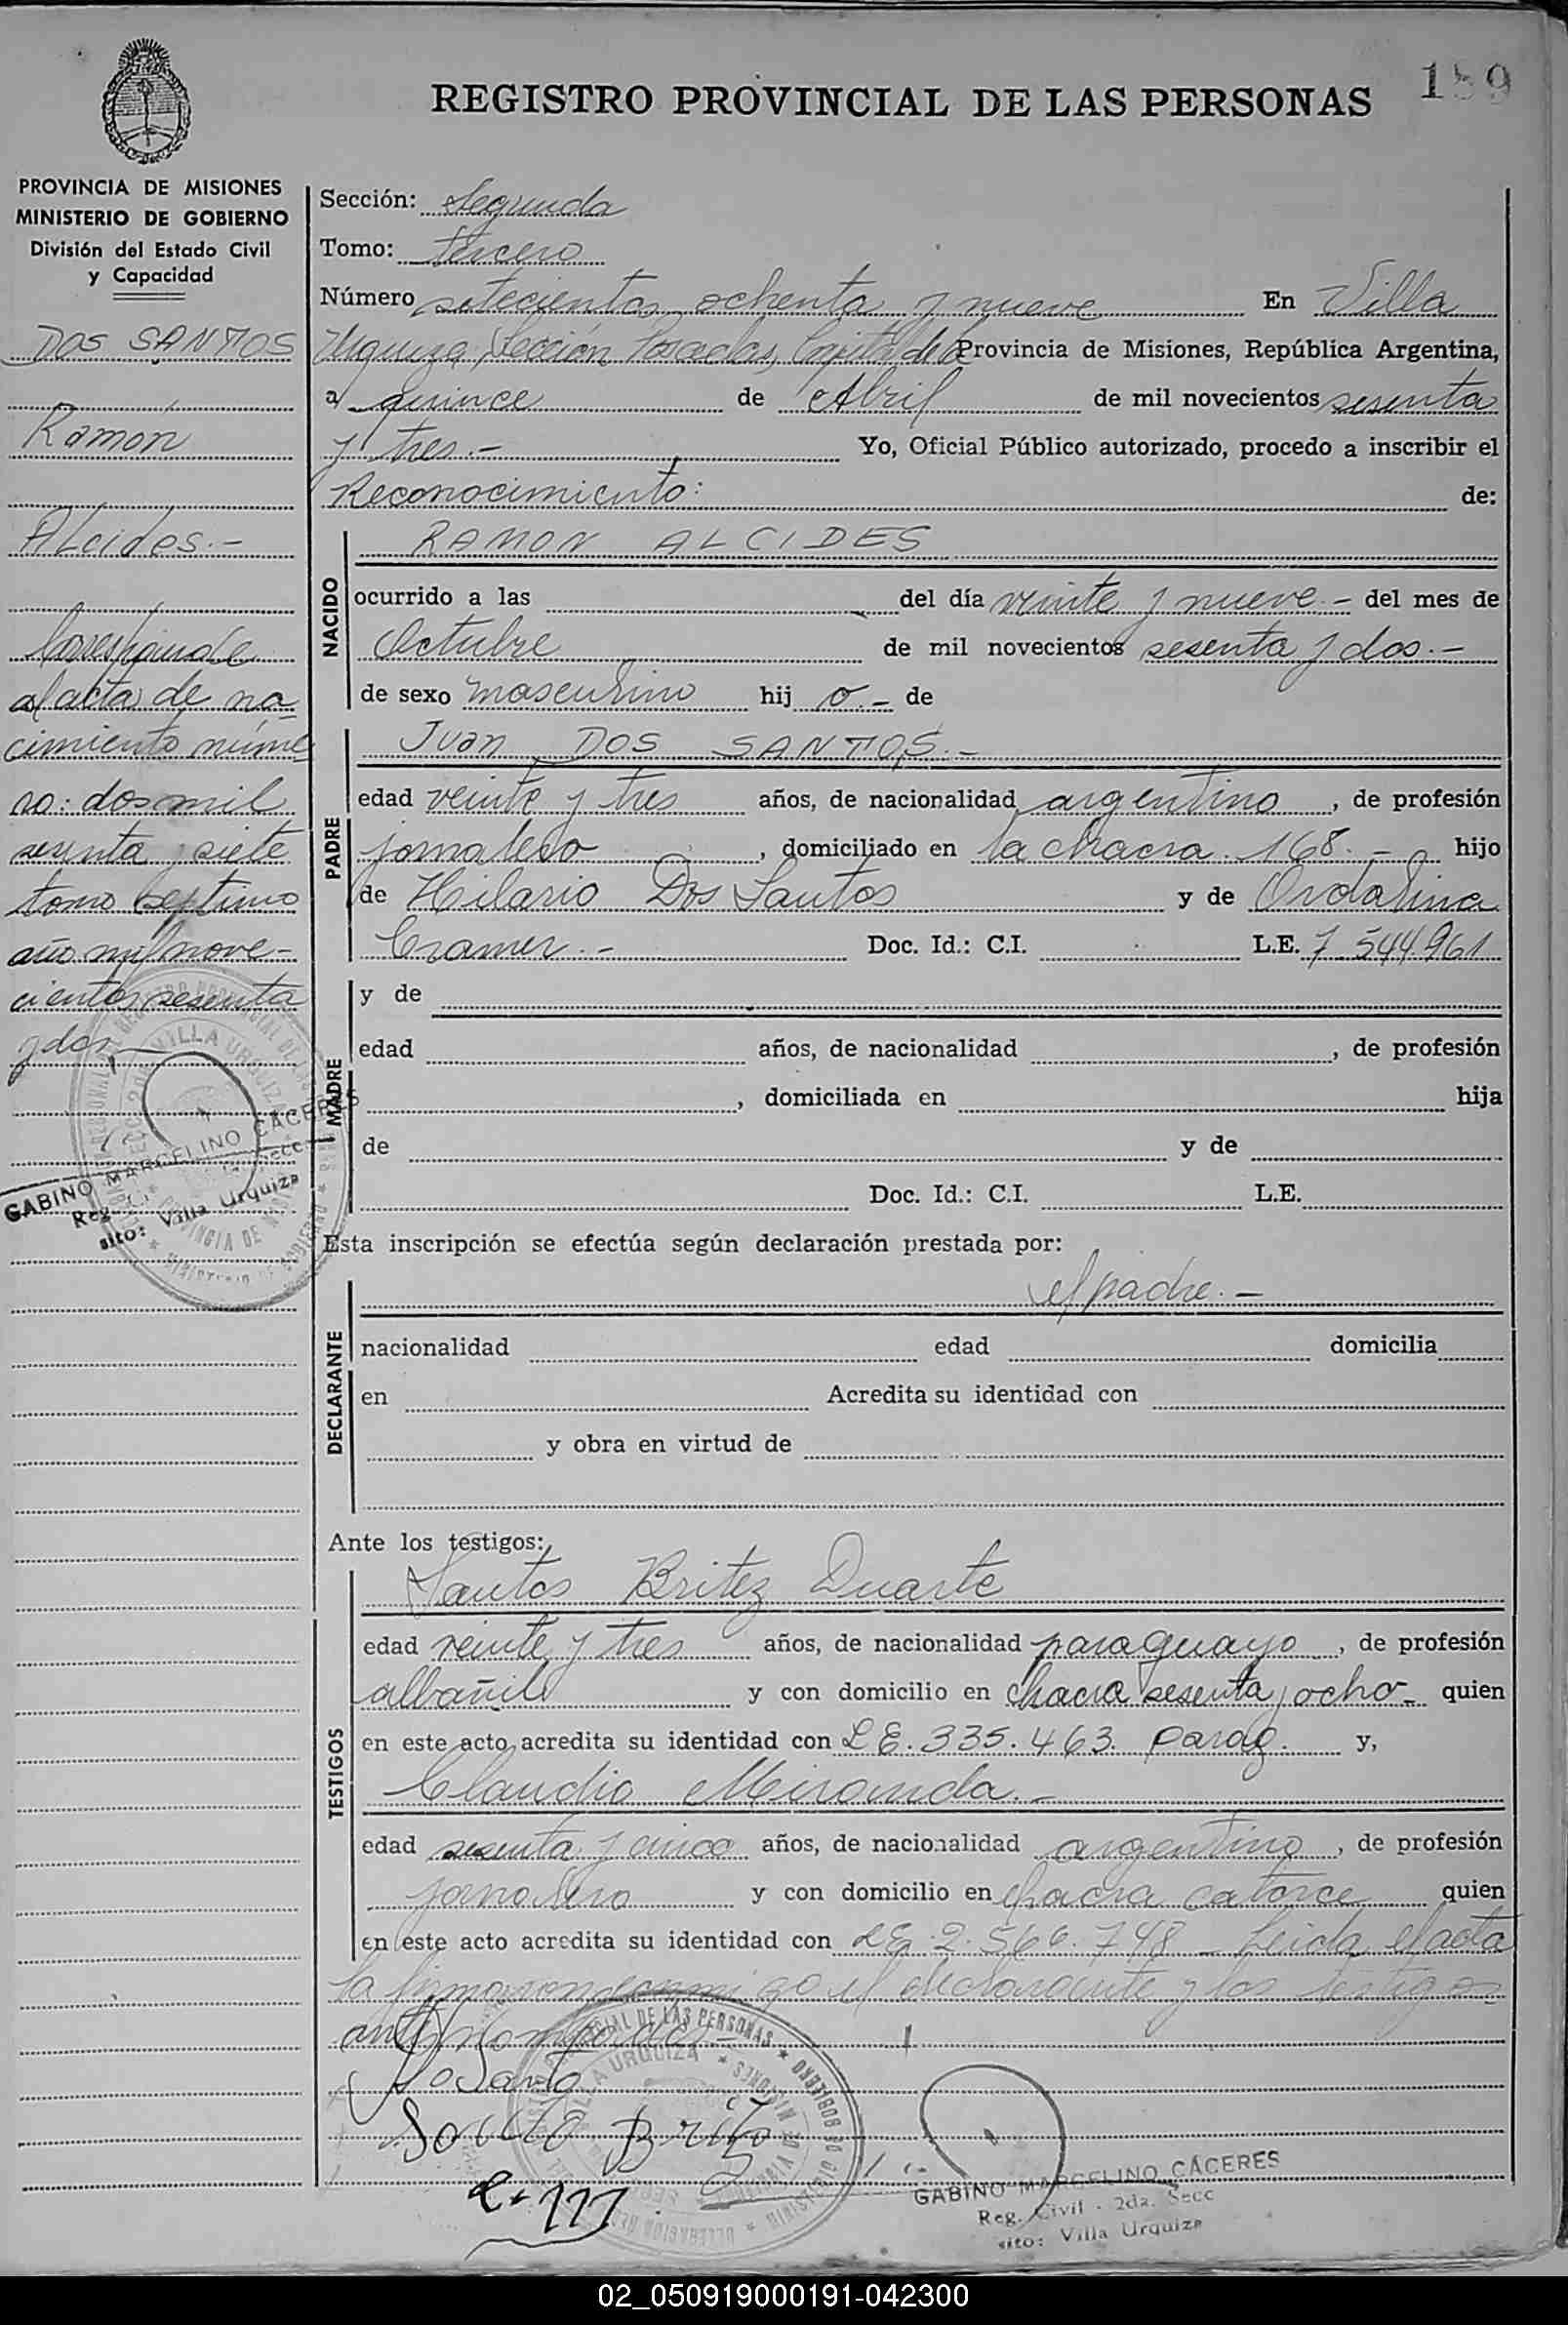 REGISTRO PROVINCIAL DE LAS PERSONAS
189
PROVINCIA DE MISIONES
MINISTERIO DE GOBIERNO
División del Estado Civil
y Capacidad
DOS SANTOS
Ramón
Alcides.-
Corresponde
al acta de na-
cimiento núme
ro: dos mil
sesenta y siete
tomo septimo
año mil nove-
cientos sesenta
y dos
VILLA URQUIZA
GABINO MARCELINO CACERES
Reg. Secc
sito: Villa Urquiza
Sección: Segunda
Tomo: tercero
Número setecientos ochenta y nueve En Villa
Urquiza, Sección Posadas, Capital de la Provincia de Misiones, República Argentina,
a quince de Abril de mil novecientos sesenta
y tres.- Yo, Oficial Público autorizado, procedo a inscribir el
Reconocimiento: de:
NACIDO
RAMON ALCIDES
ocurrido a las del día veinte y nueve.- del mes de
Octubre de mil novecientos sesenta y dos.-
de sexo masculino hij o.- de
PADRE
Juan DOS SANTOS.-
edad veinte y tres años, de nacionalidad argentino, de profesión
jornalero, domiciliado en la chacra 168.- hijo
de Hilario Dos Santos y de Ordalina
Cramer.- Doc. Id.: C.I. L.E. 7.544.961
MADRE
y de
edad años, de nacionalidad , de profesión
, domiciliada en hija
de y de
Doc. Id.: C.I. L.E.
Esta inscripción se efectúa según declaración prestada por:
el padre.-
DECLARANTE
nacionalidad edad domicilia
en Acredita su identidad con
y obra en virtud de
Ante los testigos:
TESTIGOS
Santos Britez Duarte
edad veinte y tres años, de nacionalidad paraguayo, de profesión
albañil y con domicilio en chacra sesenta y ocho- quien
en este acto acredita su identidad con LE. 335.463. parag. y,
Claudio Miranda.-
edad sesenta y cinco años, de nacionalidad argentino, de profesión
jornalero y con domicilio en chacra catorce quien
en este acto acredita su identidad con LE. 2.566.748 - Leida el acta
la firmaron conmigo el declarante y los testigos
antes nombrados
Santo Brito
GABINO MARCELINO CÁCERES
Reg. Civil - 2da. Secc
sito: Villa Urquiza
02_050919000191-042300